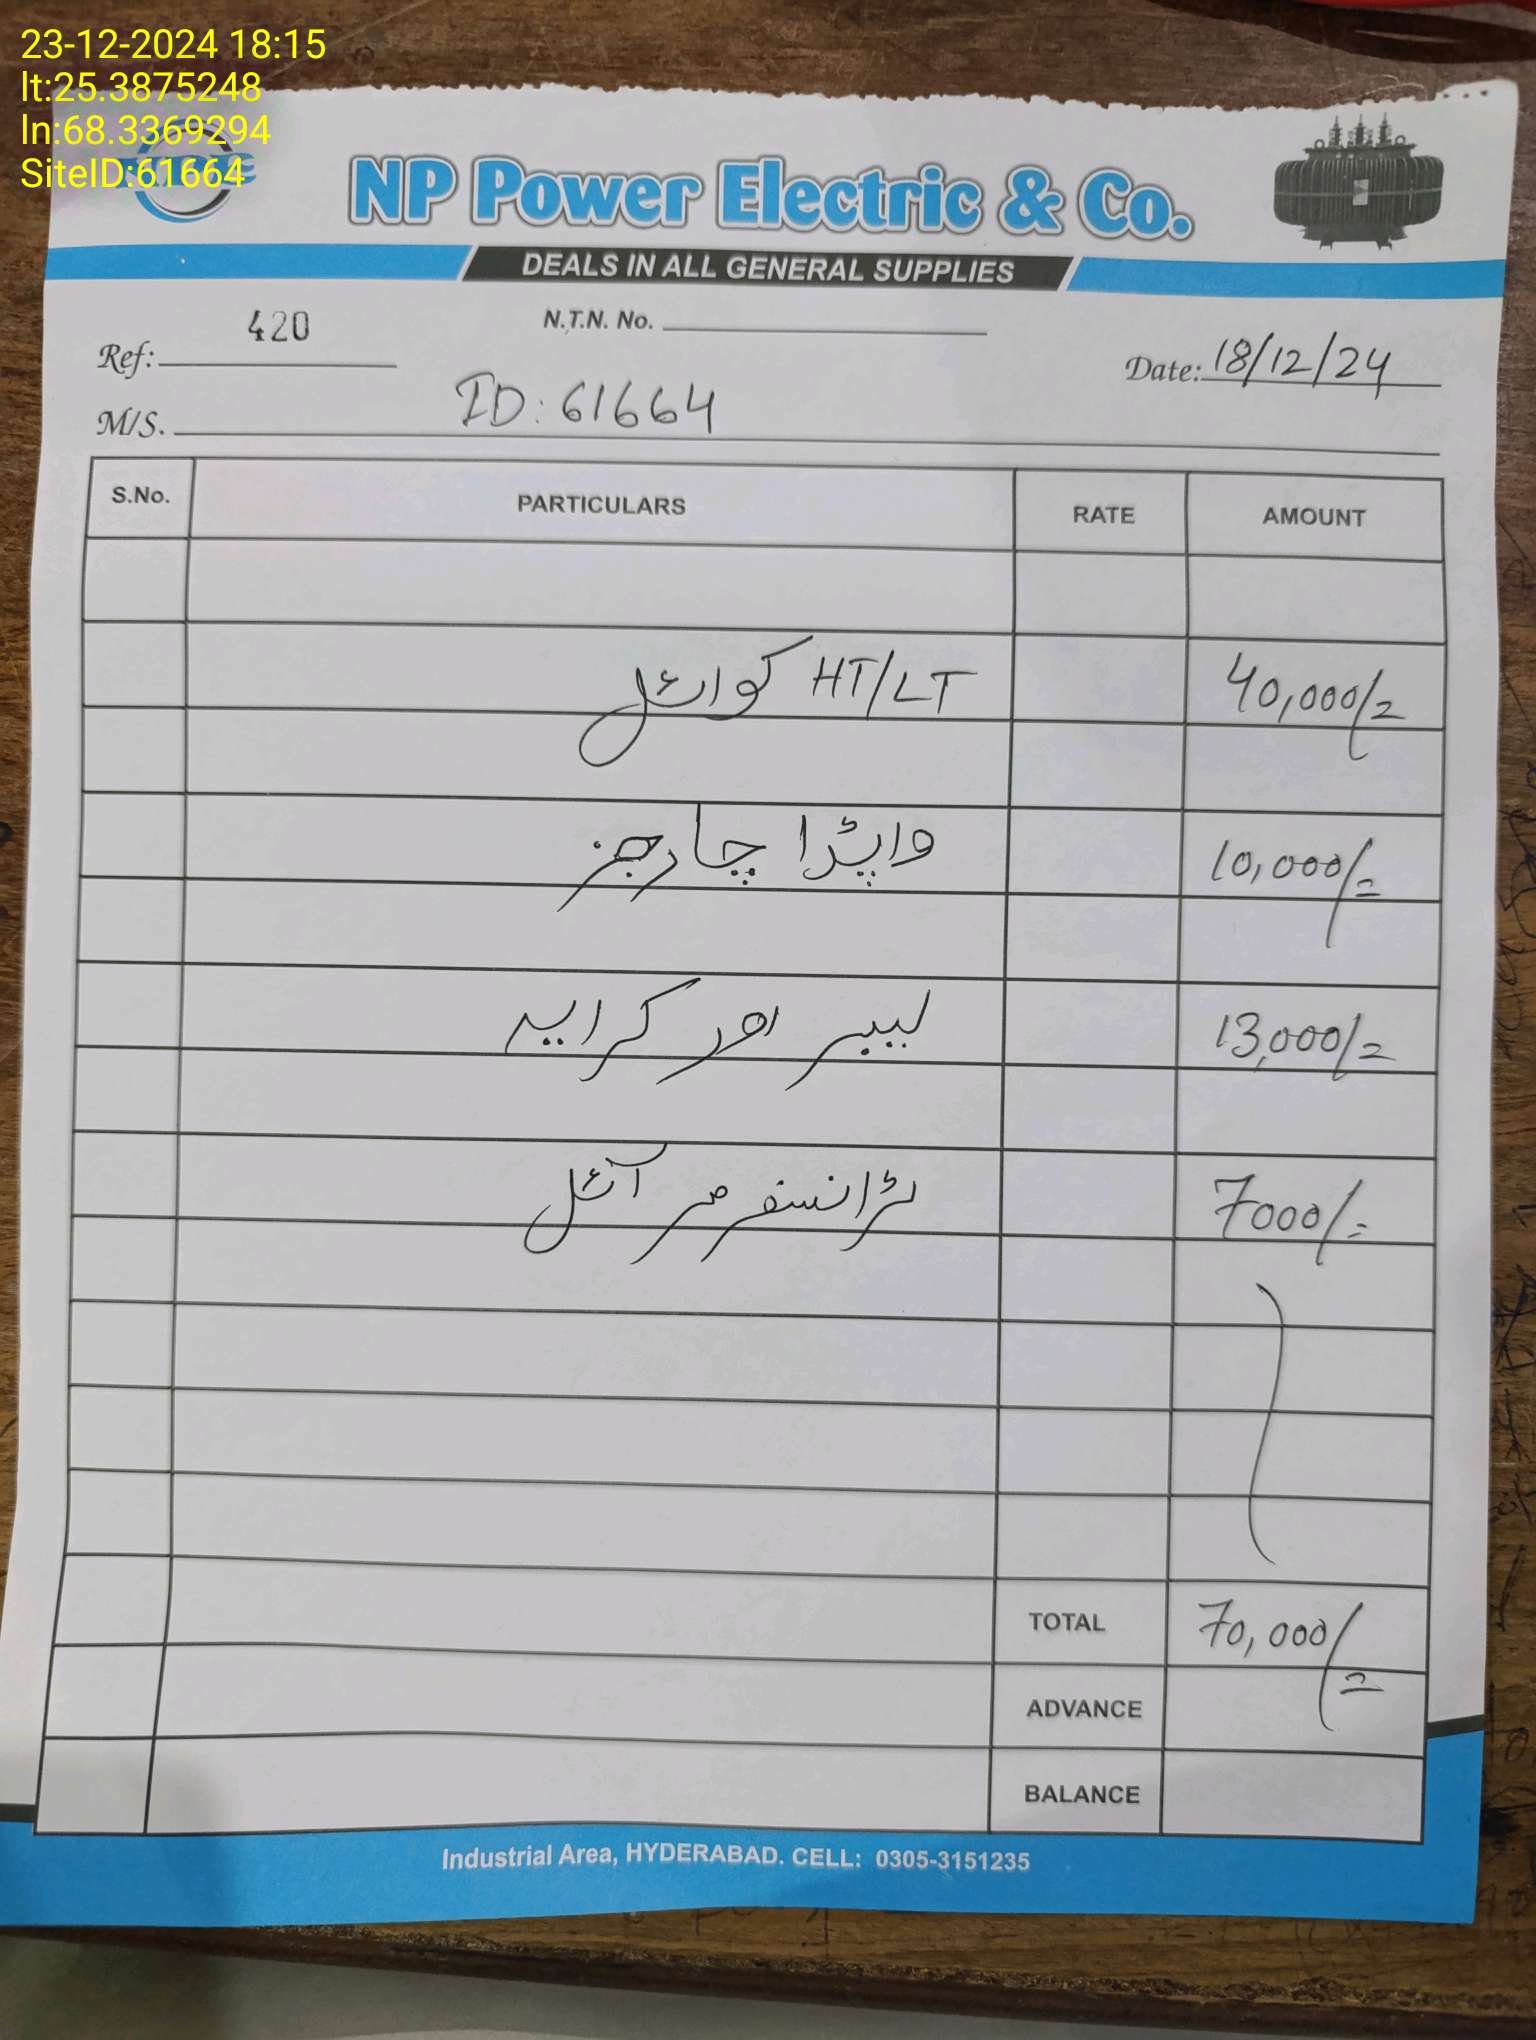 23-12-2024 18:15
lt:25.3875248
ln:68.3369294
SiteID:61664
NP Power Electric & Co.
DEALS IN ALL GENERAL SUPPLIES
Ref: 420
N.T.N. No.
Date: 18/12/24
M/S. ID: 61664
S.No. PARTICULARS RATE AMOUNT
HT/LT کوائل 40,000/=
واپڑا چارجز 10,000/=
لیبر اور کرایہ 13,000/=
ٹرانسفرمر آئل 7000/=
TOTAL 70,000/=
ADVANCE
BALANCE
Industrial Area, HYDERABAD. CELL: 0305-3151235